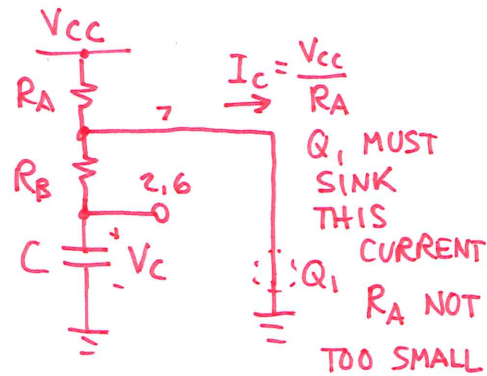 VCC
RA
7
IC = VCC / RA
Q1 MUST
SINK
THIS
CURRENT
RB
2,6
C
+
VC
-
Q1
RA NOT
TOO SMALL